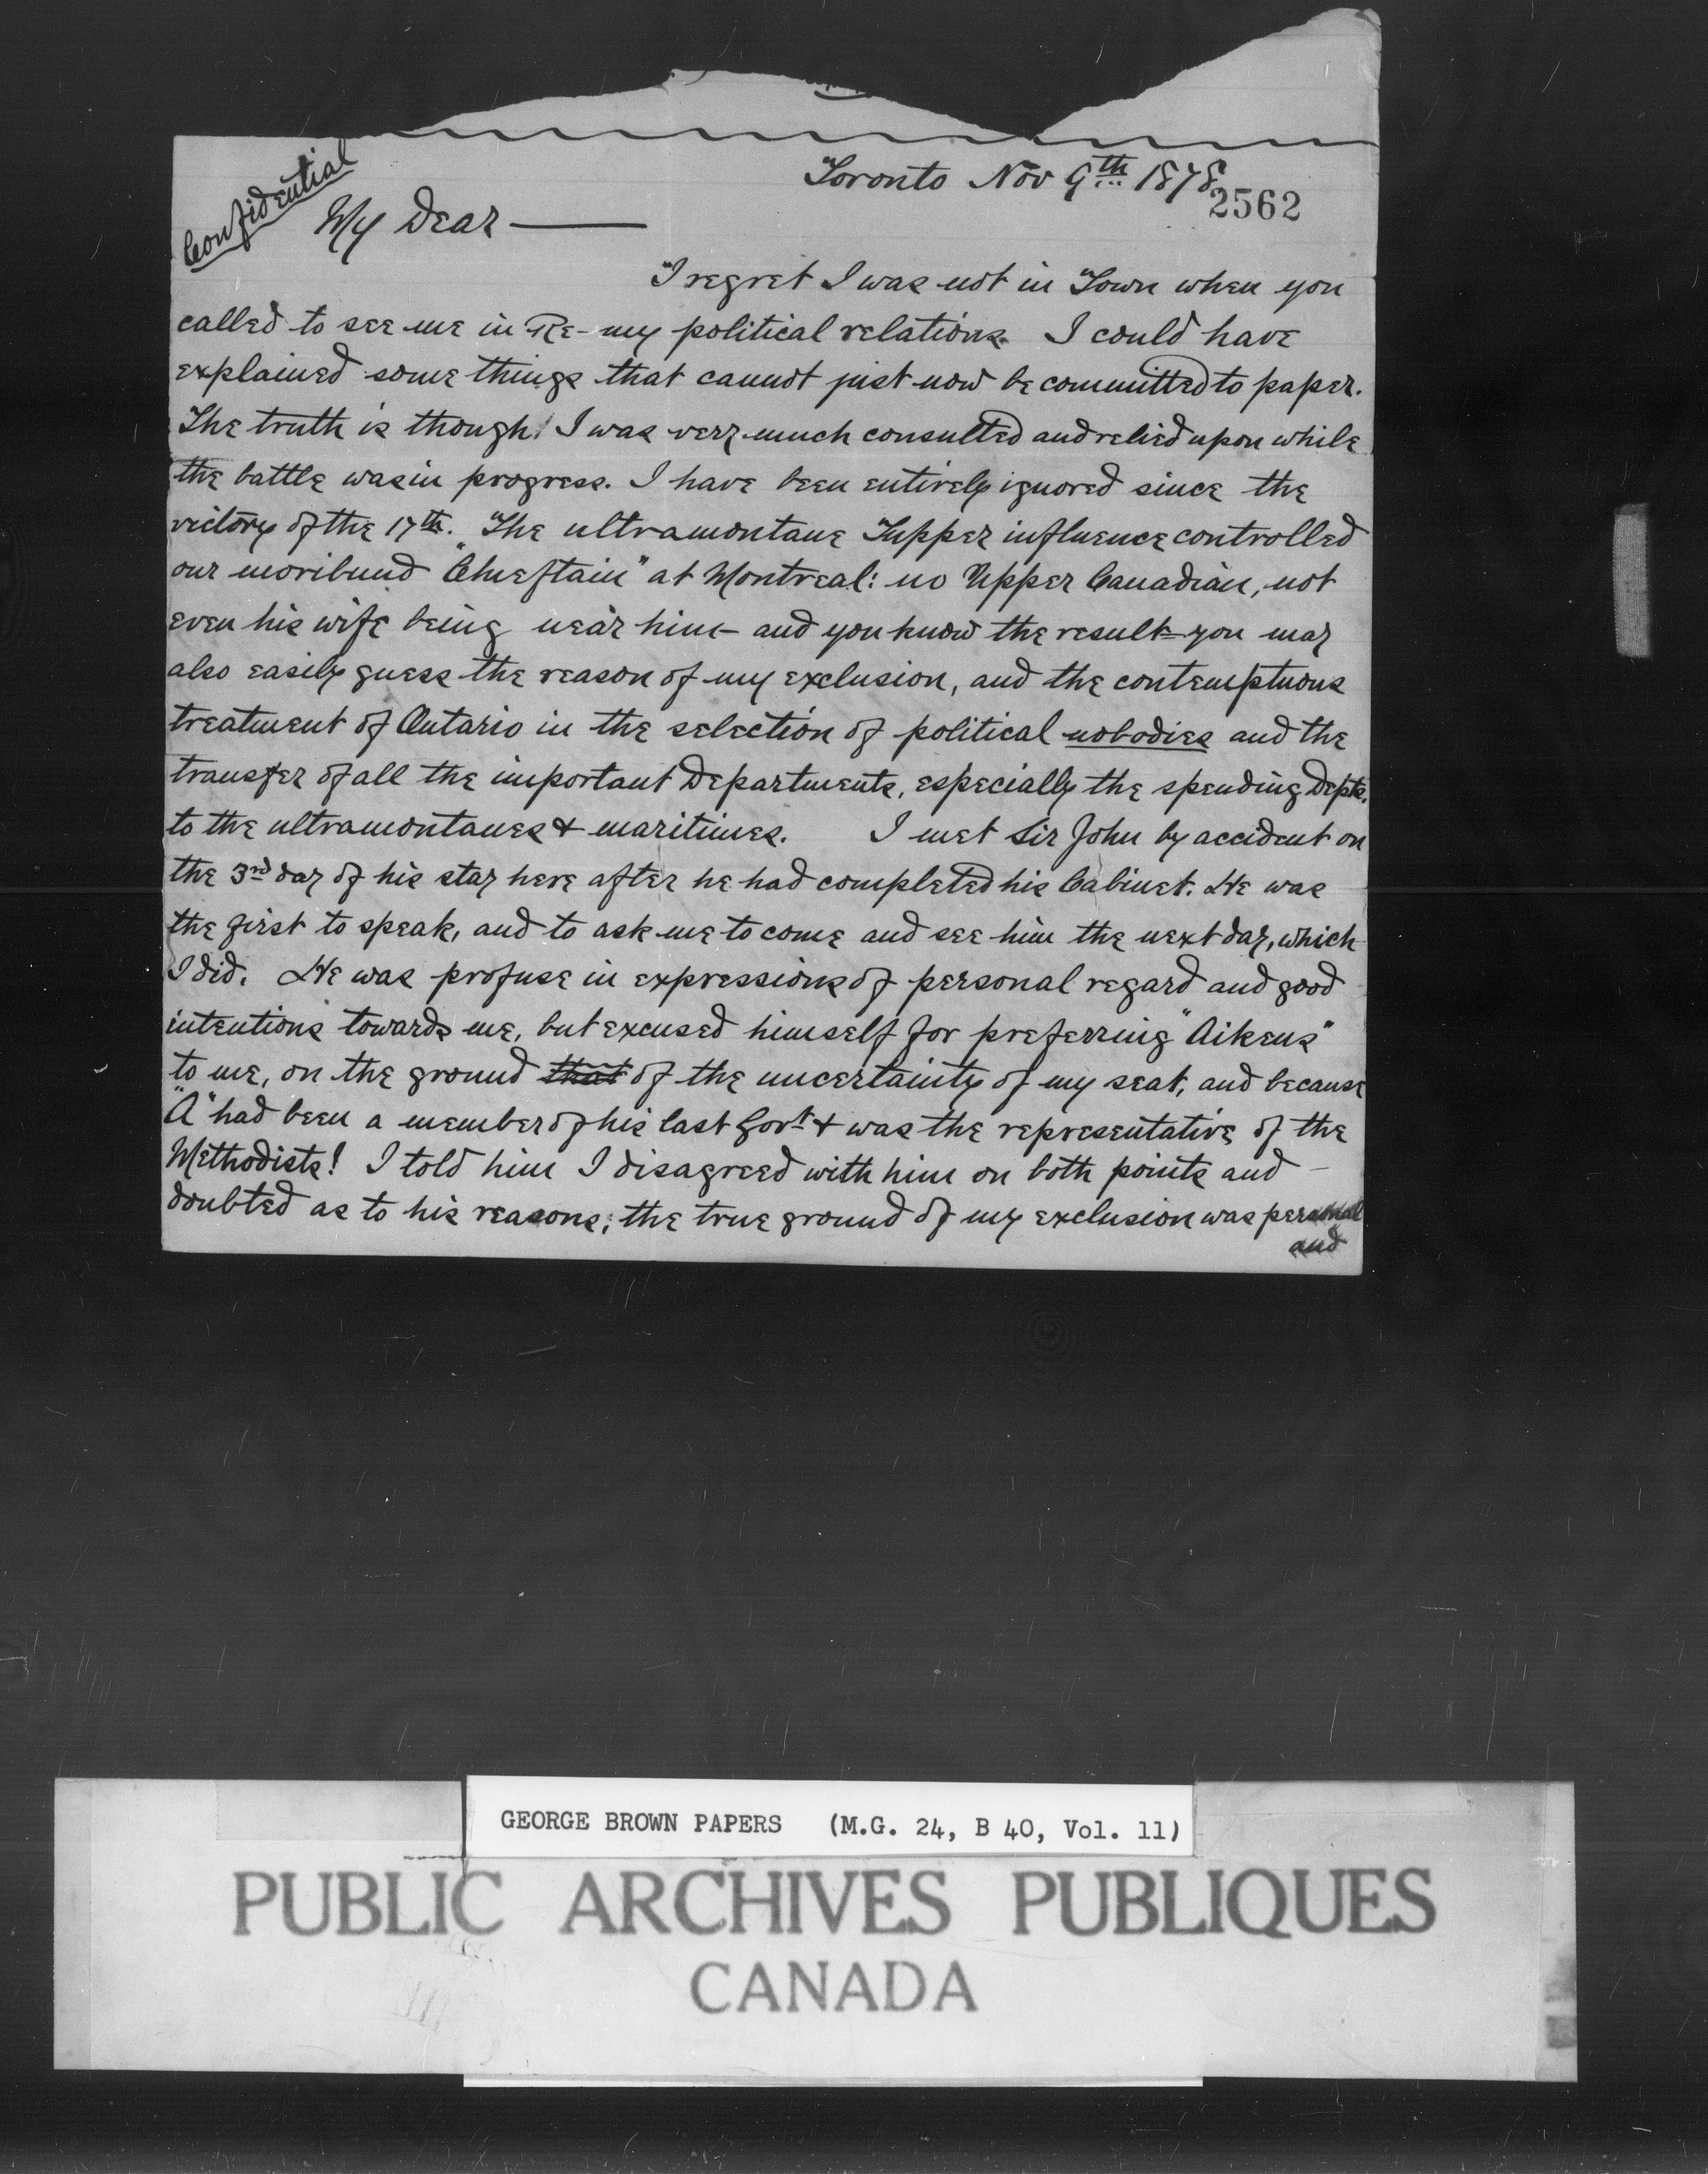 Confidential
Toronto Nov 9th 1878
2562
My Dear ———
"I regret I was not in Town when you
called to see me in Re- my political relations. I could have
explained some things that cannot just now be committed to paper.
The truth is though I was very much consulted and relied upon while
the battle was in progress. I have been entirely ignored since the
victory of the 17th. The ultramontane Tupper influence controlled
our moribund "Chieftain" at Montreal: no Upper Canadian, not
even his wife being near him - and you know the result - you may
also easily guess the reason of my exclusion, and the contemptuous
treatment of Ontario in the selection of political nobodies and the
transfer of all the important Departments, especially the spending Depts.
to the ultramontanes & maritimes. I met Sir John by accident on
the 3rd day of his stay here after he had completed his Cabinet. He was
the first to speak, and to ask me to come and see him the next day, which
I did. He was profuse in expressions of personal regard and good
intentions towards me, but excused himself for preferring "Aikens"
to me, on the ground that of the uncertainty of my seat, and because
"A" had been a member of his last Govt. & was the representative of the
Methodists! I told him I disagreed with him on both points and -
doubted as to his reasons; the true ground of my exclusion was personal
and
GEORGE BROWN PAPERS (M.G. 24, B 40, Vol. 11)
PUBLIC ARCHIVES PUBLIQUES
CANADA